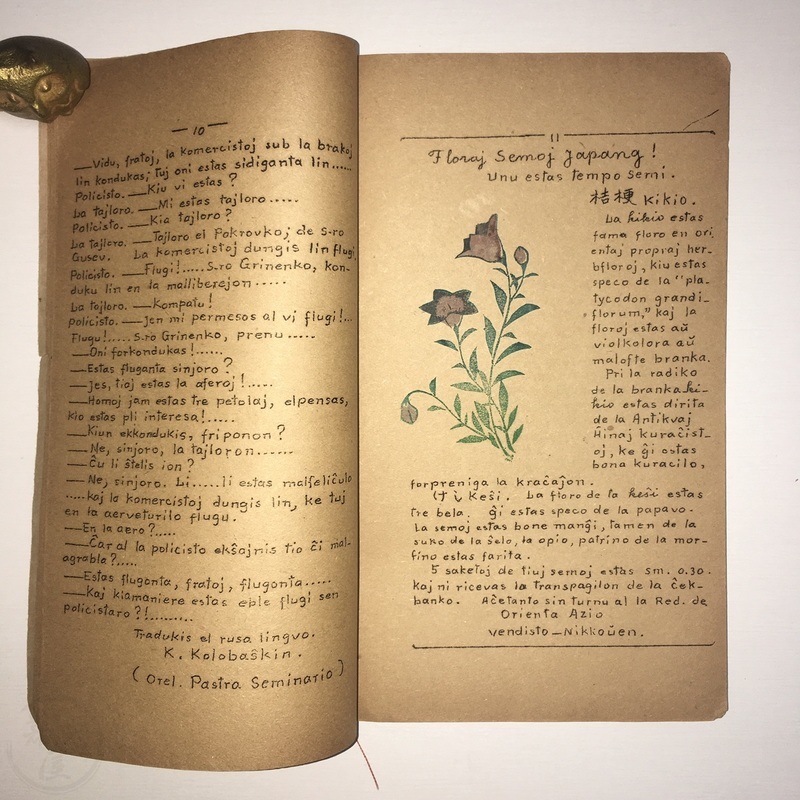 — 10 —
—Vidu, fratoj, la komercistoj sub la brakoj
lin kondukas; tuj oni estas sidiganta lin......
Policisto. —Kiu vi estas?
La tajloro. —Mi estas tajloro.....
Policisto. —Kia tajloro?
La tajloro. —Tajloro el Pokrovkoj de S-ro
Gusev. La komercistoj dungis lin flugi
Policisto. —Flugi!.....S-ro Grinenko, kon-
duku lin en la malliberejon.....
La tajloro. —Kompatu!
Policisto. —Jen mi permesos al vi flugi!...
Flugu!.....S-ro Grinenko, prenu.....
—Oni forkondukas!......
—Estas fluganta sinjoro?
—Jes, tiaj estas la aferoj!.....
—Homoj jam estas tre petolaj, elpensas,
kio estas pli interesa!.....
—Kiun ekkondukis, friponon?
—Ne, sinjoro, la tajloron......
—Ĉu li ŝtelis ion?
—Ne, sinjoro. Li.....li estas malfeliĉulo
.....kaj la komercistoj dungis lin, ke tuj
en la aerveturilo flugu.
—En la aero?.....
—Ĉar al la policisto ekŝajnis tio ĉi mal-
agrable?.....
—Estas flugonta, fratoj, flugonta.....
—Kaj kiamaniere estas eble flugi sen
policistaro?!.........
Tradukis el rusa lingvo.
K. Kolobaŝkin.
(Orel. Pastra Seminario)
11
Floraj Semoj Japanaj!
Unu estas tempo semi.
桔梗 Kikio.
La kikio estas
fama floro en ori
entaj propraj her-
bfloroj, kiu estas
speco de la "pla-
tycodon grandi-
florum," kaj la
floroj estas aŭ
violkolora aŭ
malofte branka.
Pri la radiko
de la branka ki-
kio estas dirita
de la Antikvaj
Ĥinaj kuracist-
oj, ke ĝi estas
bona kuracilo,
forpreniga la kraĉaĵon.
けし Keŝi. La floro de la keŝi estas
tre bela. Ĝi estas speco de la papavo.
La semoj estas bone manĝi, tamen de la
suko de la ŝelo, la opio, patrino de la mor-
fino estas farita.
5 saketoj de tiuj semoj estas Sm. 0.30.
kaj ni ricevas la transpagilon de la ĉek-
banko. Aĉetanto sin turnu al la Red. de
Orienta Azio
Vendisto—Nikkoŭen.